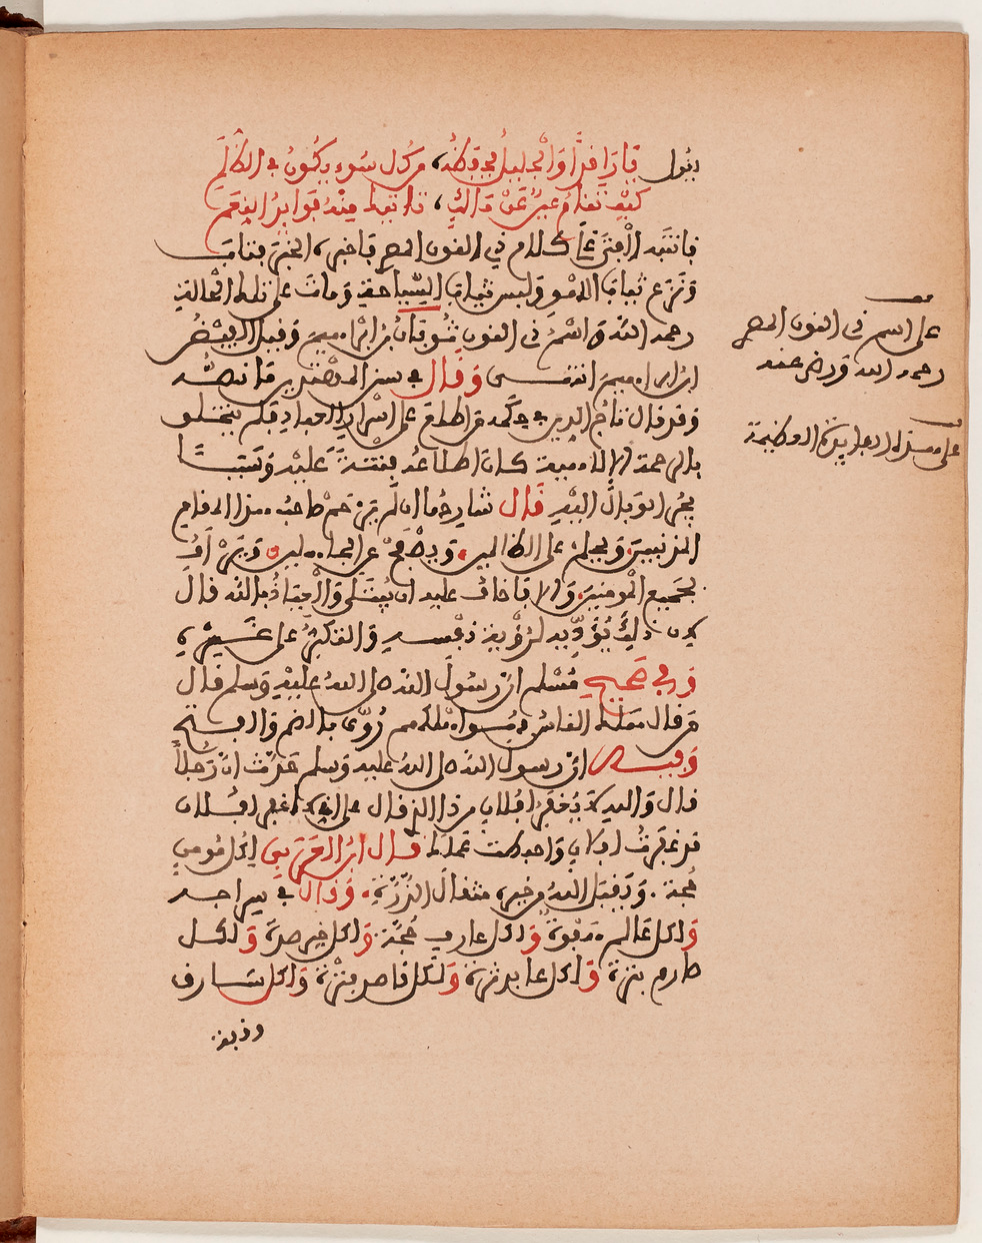 يقول يا راقدا والجليل يحفظه، من كل سوء يكون في الظلم
كيف تنام عين عن ذلك، تاتيك منه فوايد النعم
فانتبه الفتى على كلام ذي النون المصري فاخبره الخبر فتاب
ونزع ثياب اللهو ولبس ثياب السياحة ومات على تلك الحالة
رحمه الله واسم ذي النون ثوبان بن ابراهيم وقيل الفيض
ابن ابراهيم انتهى وقال في سنن المهتدين ما نصه
وقد قال تاج الدين في حكمه من اطلع على اسرار العباد فلم يتخلق
بالرحمة الالاهية كان اطلاعه فتنة عليه وسببا
يجر الوبال اليه قال شارحها ان لم يرحم صاحب هذا المقام
المذنبين ويحلم على الظالمين ويصفح عن الجاهلين ويرأف
بجميع المومنين والا يخاف عليه ان يبتلى والعياذ بالله قال
لان ذلك يؤديه لرؤية نفسه والتكبر على غيره
وفي صحيح مسلم ان رسول الله صلى الله عليه وسلم قال
من قال هلك الناس فهو اهلكهم روي بالضم والفتح
وفيه ان رسول الله صلى الله عليه وسلم حدث ان رجلا
قال والله لا يغفر الله لفلان من ذا الذي قال على الله لا اغفر لفلان
قد غفرت لفلان واحبطت عملك قال ابن العربي لكل مومن
حجة. ويقبل الله من خيره مثقال الذرة. وقال في سراجه
ولكل عالم هفوة ولكل عارف حجة ولكل حريص ولكل
صارم نبوة ولكل عابد شرة ولكل قاصد فترة ولكل سارف
على اسم ذي النون المصري
رحمه الله ورضي عنه
على هذه الفايدة العظيمة